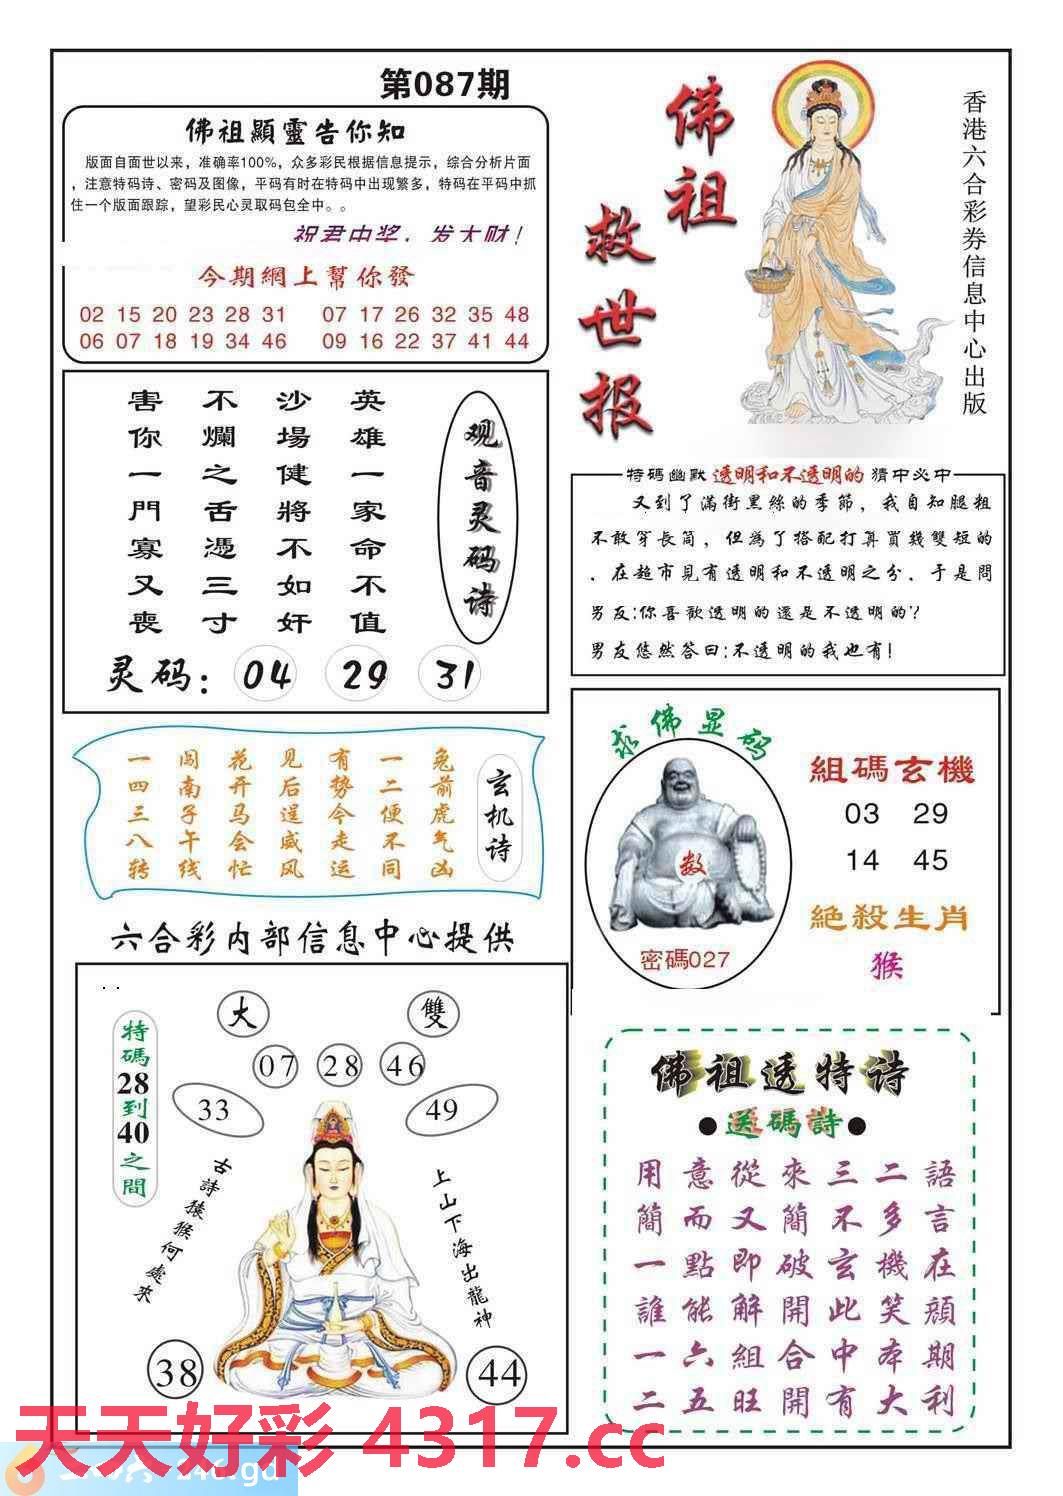 第087期
佛祖顯靈告你知
版面自面世以来，准确率100%，众多彩民根据信息提示，综合分析片面
，注意特码诗、密码及图像，平码有时在特码中出现繁多，特码在平码中抓
住一个版面跟踪，望彩民心灵取码包全中。。
祝君中奖，发大财！
今期網上幫你發
02 15 20 23 28 31 07 17 26 32 35 48
06 07 18 19 34 46 09 16 22 37 41 44
佛祖
救世报
香港六合彩券信息中心出版
观音灵码诗
英雄一家命不值
沙場健將不如奸
不爛之舌憑三寸
害你一門寡又喪
灵码：04 29 31
特碼幽默 透明和不透明的 猜中必中
又到了滿街黑絲的季節，我自知腿粗
不敢穿長筒，但為了搭配打算買幾雙短的
．在超市見有透明和不透明之分．于是問
男友:你喜歡透明的還是不透明的?
男友悠然答曰:不透明的我也有!
玄机诗
兔前虎气凶
一二便不同
有势今走运
见后逞威风
花开马会忙
闯南子午线
一四三八转
求佛显码
数
密碼027
組碼玄機
03 29
14 45
絕殺生肖
猴
六合彩内部信息中心提供
特碼28到40之間
大
雙
07 28 46
33
49
古詩猿猴何處來
上山下海出龍神
38
44
佛祖透特诗
●送碼詩●
用意從來三二語
簡而又簡不多言
一點即破玄機在
誰能解開此笑顔
一六組合中本期
二五旺開有大利
天天好彩 4317.cc
246.gd